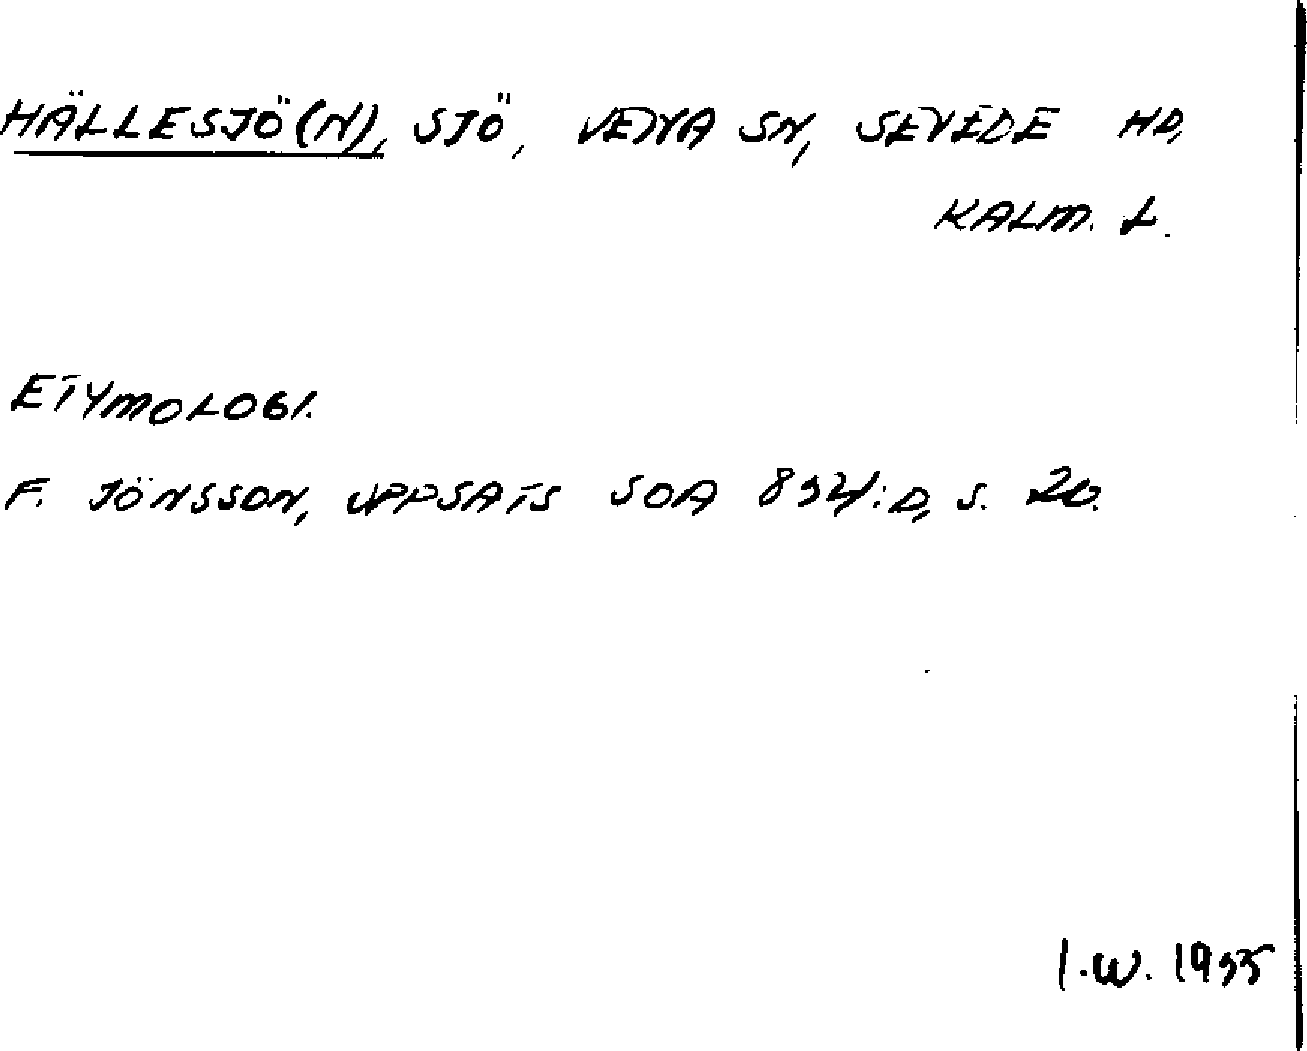 HÄLLESJÖ(N), SJÖ, VENA SN, SEVEDE HD,
KALM. L.
ETYMOLOGI.
F. JÖNSSON, UPPSATS SOA S. 20.
I.W. 1935